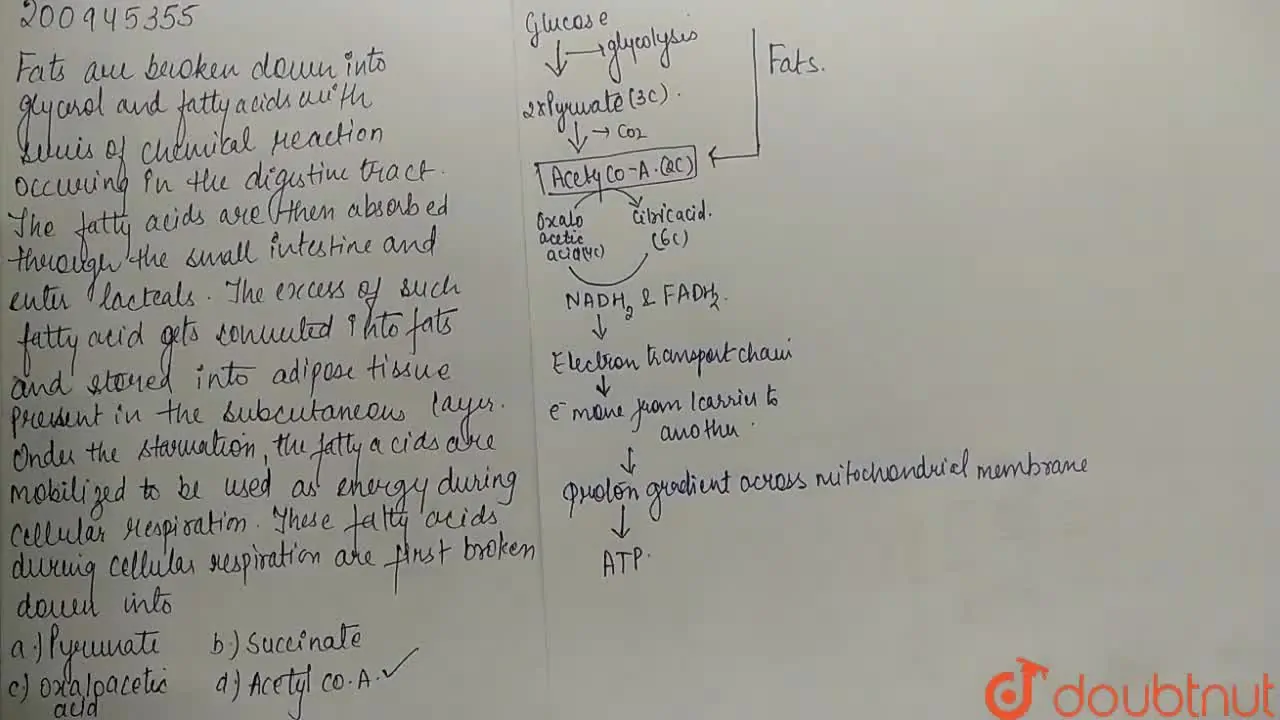 200945355
Fats are broken down into
glycerol and fatty acids with
series of chemical reaction
occuring in the digestive tract.
The fatty acids are then absorbed
through the small intestine and
enter lacteals. The excess of such
fatty acid gets converted into fats
and stored into adipose tissue
present in the subcutaneous layer.
Under the starvation, the fatty acids are
mobilized to be used as energy during
cellular respiration. These fatty acids
during cellular respiration are first broken
down into
a.) Pyruvate b.) Succinate
c) Oxaloacetic d) Acetyl co.A. ✓
acid
Glucose
→ glycolysis
2xPyruvate (3C).
→ CO2
Acetyl Co-A. (2C)
Fats.
Oxalo
acetic
acid (4C)
Citric acid.
(6C)
NADH2 & FADH2.
Electron transport chain
e⁻ move from 1 carrier to
another.
Proton gradient across mitochondrial membrane
ATP.
doubtnut